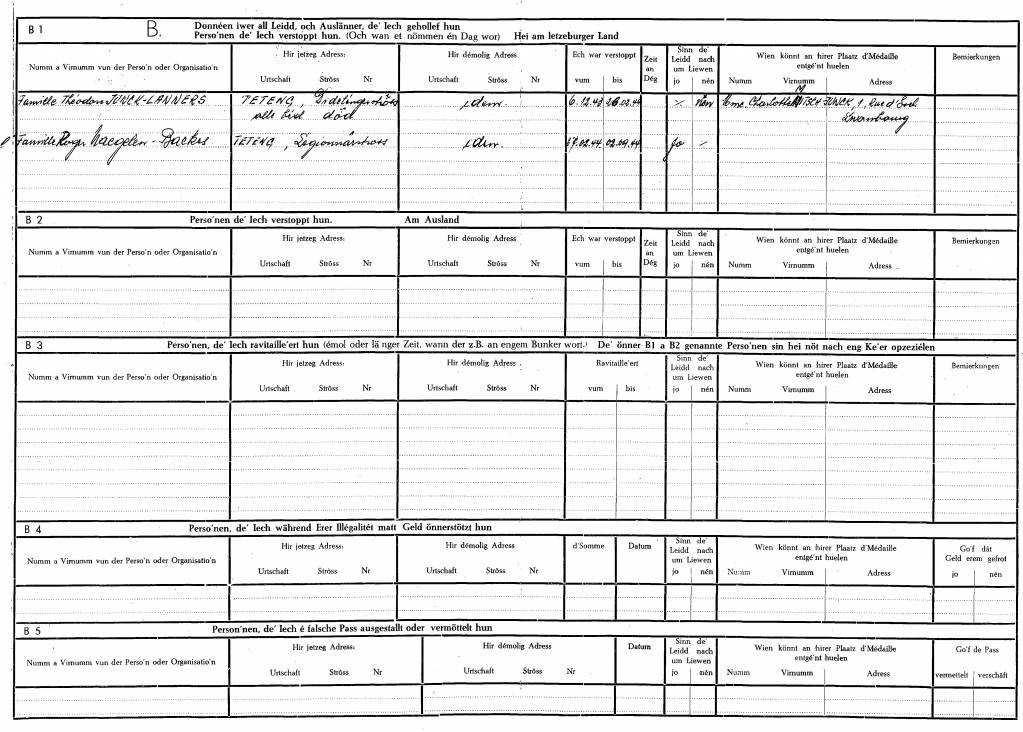 B 1 B. Donnéen iwer all Leidd, och Auslänner, de' Iech gehollef hun
Perso'nen de' Iech verstoppt hun. (Och wan et nömmen én Dag wor) Hei am letzeburger Land
Numm a Virnumm vun der Perso'n oder Organisatio'n Hir jetzeg Adress: Hir démolig Adress: Ech war verstoppt Zeit an Dég Sinn de' Leidd nach um Liewen Wien könnt an hirer Plaatz d'Médaille entgé'nt huelen Bemierkungen
Urtschaft Ströss Nr Urtschaft Ströss Nr vum bis jo nén Numm Virnumm Adress
Famille Théodore JUNCK-LANNERS TETENG, Didelingerströss idem. 6.12.43 26.02.44 nén Charlotte JUNCK, 1, Rue d'
alle béid död Luxembourg
Famille Roger Naegelen-Backes TETENG, Légionnärströss idem. 17.02.44 02.09.44 Jo -
B 2 Perso'nen de' Iech verstoppt hun. Am Ausland
Numm a Virnumm vun der Perso'n oder Organisatio'n Hir jetzeg Adress: Hir démolig Adress Ech war verstoppt Zeit an Dég Sinn de' Leidd nach um Liewen Wien könnt an hirer Plaatz d'Médaille entgé'nt huelen Bemierkungen
Urtschaft Ströss Nr Urtschaft Ströss Nr vum bis jo nén Numm Virnumm Adress
B 3 Perso'nen, de' Iech ravitaille'ert hun (émol oder länger Zeit, wann der z.B. an engem Bunker wort.) De' önner B1 a B2 genannte Perso'nen sin hei nöt nach eng Ke'er opzeziélen
Numm a Virnumm vun der Perso'n oder Organisatio'n Hir jetzeg Adress: Hir démolig Adress: Ravitaille'ert Sinn de' Leidd nach um Liewen Wien könnt an hirer Plaatz d'Médaille entgé'nt huelen Bemierkungen
Urtschaft Ströss Nr Urtschaft Ströss Nr vum bis jo nén Numm Virnumm Adress
B 4 Perso'nen, de' Iech während Erer Illégalitét matt Geld önnerstötzt hun
Numm a Virnumm vun der Perso'n oder Organisatio'n Hir jetzeg Adress: Hir démolig Adress d'Somme Datum Sinn de' Leidd nach um Liewen Wien könnt an hirer Plaatz d'Médaille entgé'nt huelen Go'f dât Geld erem gefrot
Urtschaft Ströss Nr Urtschaft Ströss Nr jo nén Numm Virnumm Adress jo nén
B 5 Person'nen, de' Iech é falsche Pass ausgestallt oder vermöttelt hun
Numm a Virnumm vun der Perso'n oder Organisatio'n Hir jetzeg Adress: Hir démolig Adress Datum Sinn de' Leidd nach um Liewen Wien könnt an hirer Plaatz d'Médaille entgé'nt huelen Go'f de Pass
Urtschaft Ströss Nr Urtschaft Ströss Nr jo nén Numm Virnumm Adress vermettelt verschäft